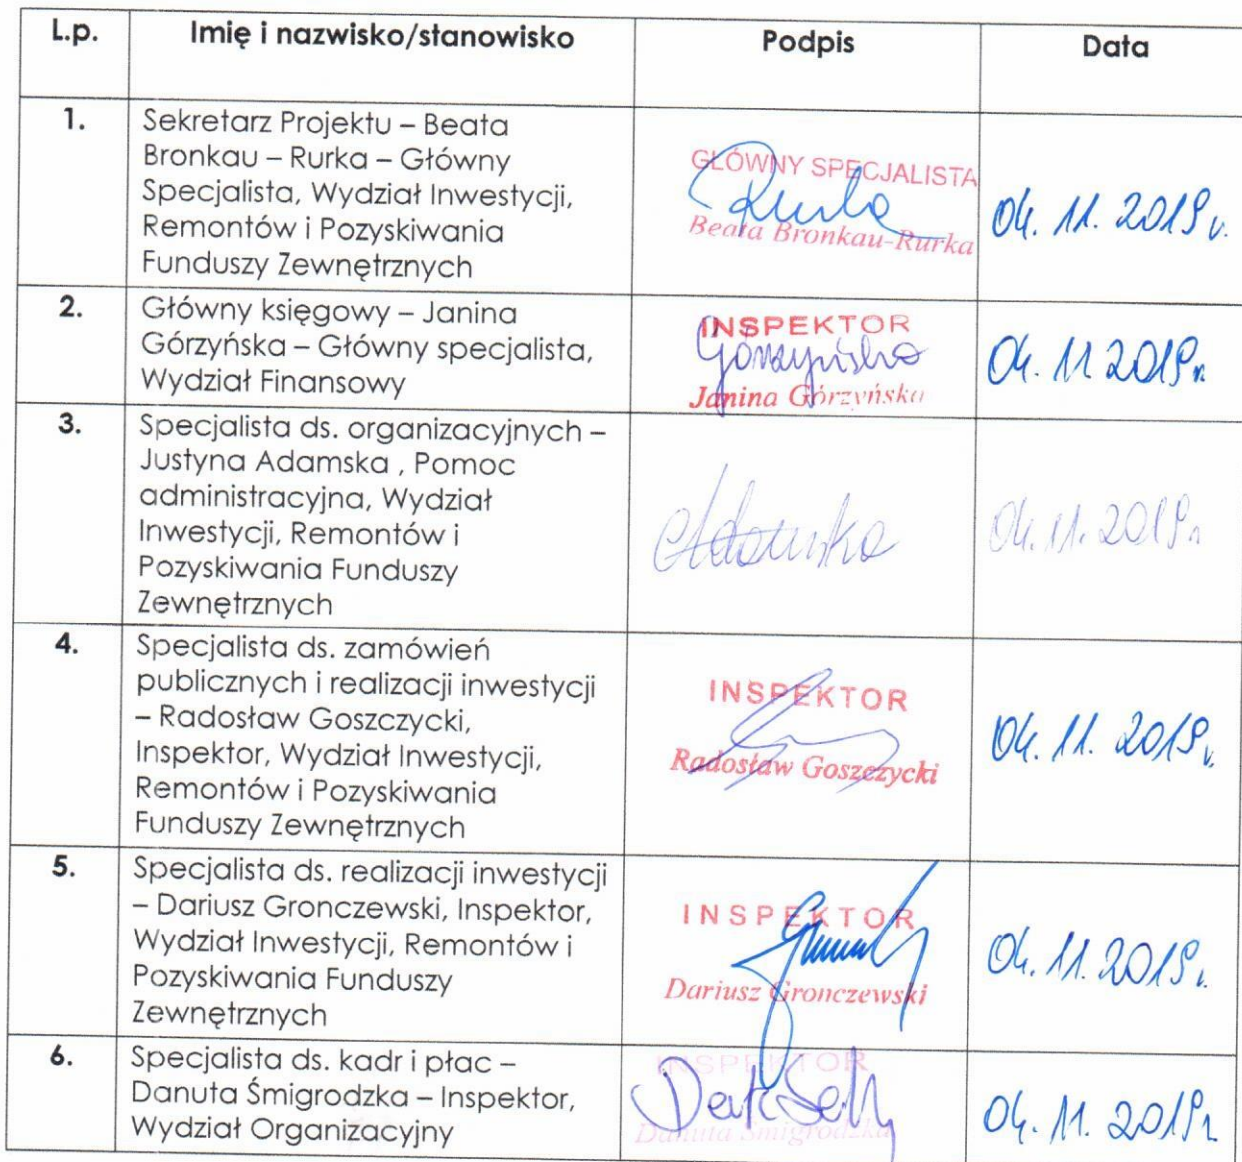 L.p. Imię i nazwisko/stanowisko Podpis Data
1. Sekretarz Projektu – Beata
Bronkau – Rurka – Główny
Specjalista, Wydział Inwestycji,
Remontów i Pozyskiwania
Funduszy Zewnętrznych
GŁÓWNY SPECJALISTA
Rurka
Beata Bronkau-Rurka
04. 11. 2019 r.
2. Główny księgowy – Janina
Górzyńska – Główny specjalista,
Wydział Finansowy
INSPEKTOR
Górzyńska
Janina Górzyńska
04. 11 2019 r.
3. Specjalista ds. organizacyjnych –
Justyna Adamska , Pomoc
administracyjna, Wydział
Inwestycji, Remontów i
Pozyskiwania Funduszy
Zewnętrznych
Adamska
04. 11. 2019 r
4. Specjalista ds. zamówień
publicznych i realizacji inwestycji
– Radosław Goszczycki,
Inspektor, Wydział Inwestycji,
Remontów i Pozyskiwania
Funduszy Zewnętrznych
INSPEKTOR
Radosław Goszczycki
04. 11. 2019 r.
5. Specjalista ds. realizacji inwestycji
– Dariusz Gronczewski, Inspektor,
Wydział Inwestycji, Remontów i
Pozyskiwania Funduszy
Zewnętrznych
INSPEKTOR
Dariusz Gronczewski
04. 11. 2019 r.
6. Specjalista ds. kadr i płac –
Danuta Śmigrodzka – Inspektor,
Wydział Organizacyjny
INSPEKTOR
Danuta Śmigrodzka
04. 11. 2019 r